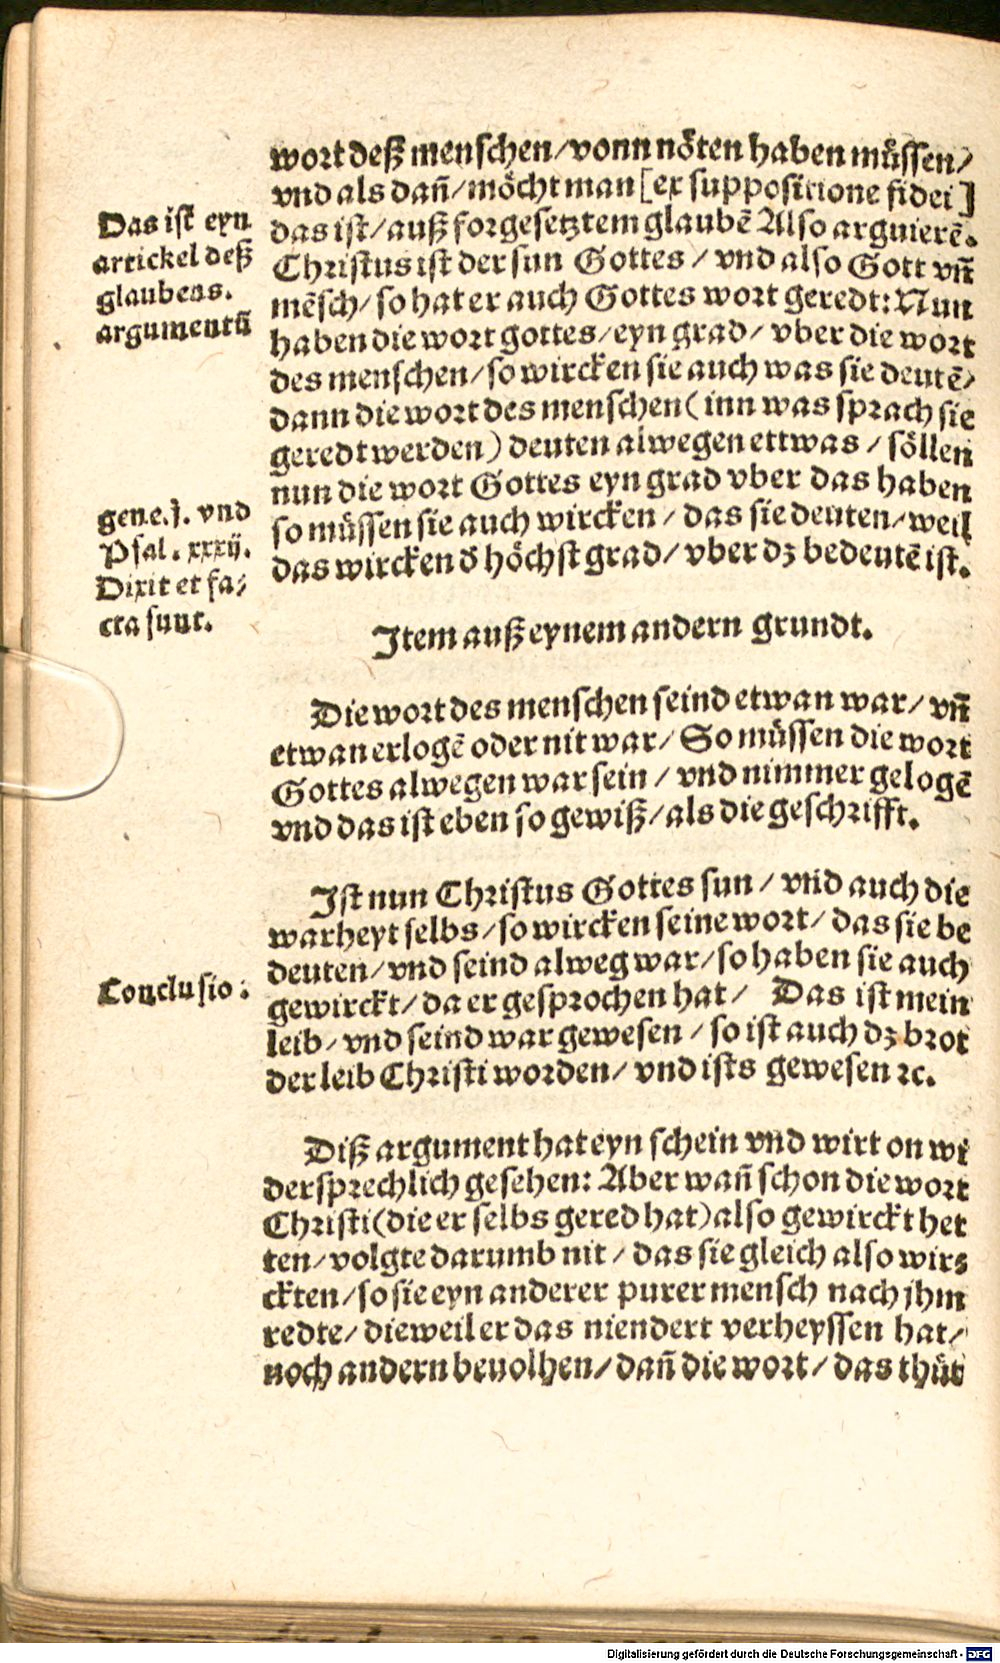 wort deß menschen/vonn nöten haben müssen/
vnd als dañ/möcht man [ex suppositione fidei]
das ist/auß forgesetztem glaubē Also arguierē.
Christus ist der sun Gottes / vnd also Gott vñ
mēsch/so hat er auch Gottes wort geredt: Nun
haben die wort gottes/eyn grad/ vber die wort
des menschen/so wircken sie auch was sie deutē/
dann die wort des menschen( inn was sprach sie
geredt werden) deuten alwegen ettwas / söllen
nun die wort Gottes eyn grad vber das haben
so müssen sie auch wircken / das sie deuten/weil
das wircken d̄ höchst grad/ vber dz bedeutē ist.
Das ist eyn
artickel deß
glaubens.
argumentū
gene.j. vnd
Psal. xxxij.
Dixit et fa/
cta sunt.
Item auß eynem andern grundt.
Die wort des menschen seind etwan war/ vñ
etwan erlogē oder nit war/ So müssen die wort
Gottes alwegen war sein / vnd nimmer gelogē
vnd das ist eben so gewiß/als die geschrifft.
Ist nun Christus Gottes sun / vnd auch die
warheyt selbs/so wircken seine wort/ das sie be
deuten/vnd seind alweg war/so haben sie auch
gewirckt/da er gesprochen hat/ Das ist mein
leib/vnd seind war gewesen / so ist auch dz brot
der leib Christi worden/ vnd ists gewesen ꝛc.
Conclusio:
Diß argument hat eyn schein vnd wirt on wi
dersprechlich gesehen: Aber wañ schon die wort
Christi(die er selbs gered hat)also gewirckt het
ten/volgte darumb nit / das sie gleich also wir⸗
ckten/so sie eyn anderer purer mensch nach jhm
redte/ dieweil er das niendert verheyssen hat/
noch andern beuolhen/dañ die wort/ das thůt
Digitalisierung gefördert durch die Deutsche Forschungsgemeinschaft - DFG